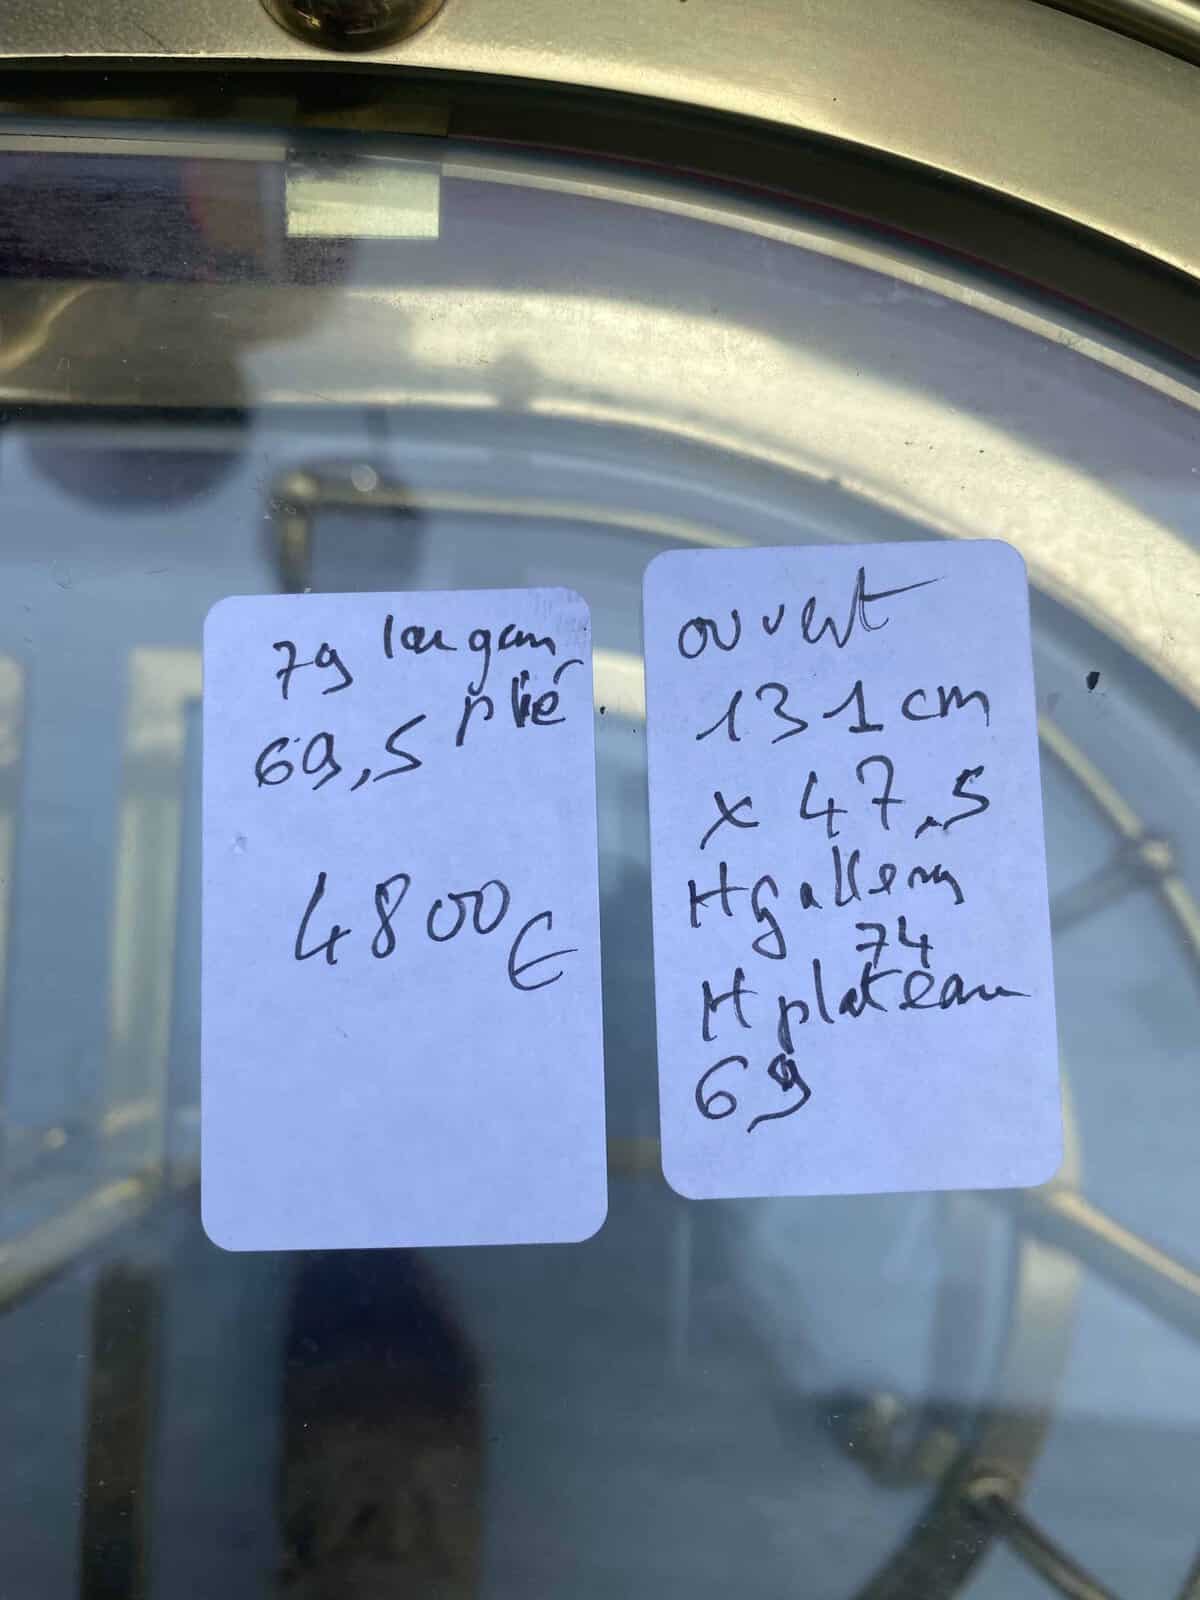 79 largeur
plié
69,5
4800€
ouvert
131 cm
x 47,5
H gallery
74
H plateau
69